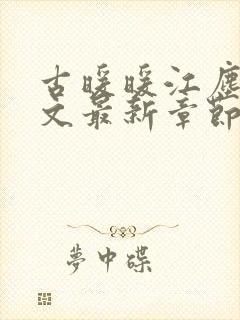 古暖暖江塵
文最新章節
夢中碟